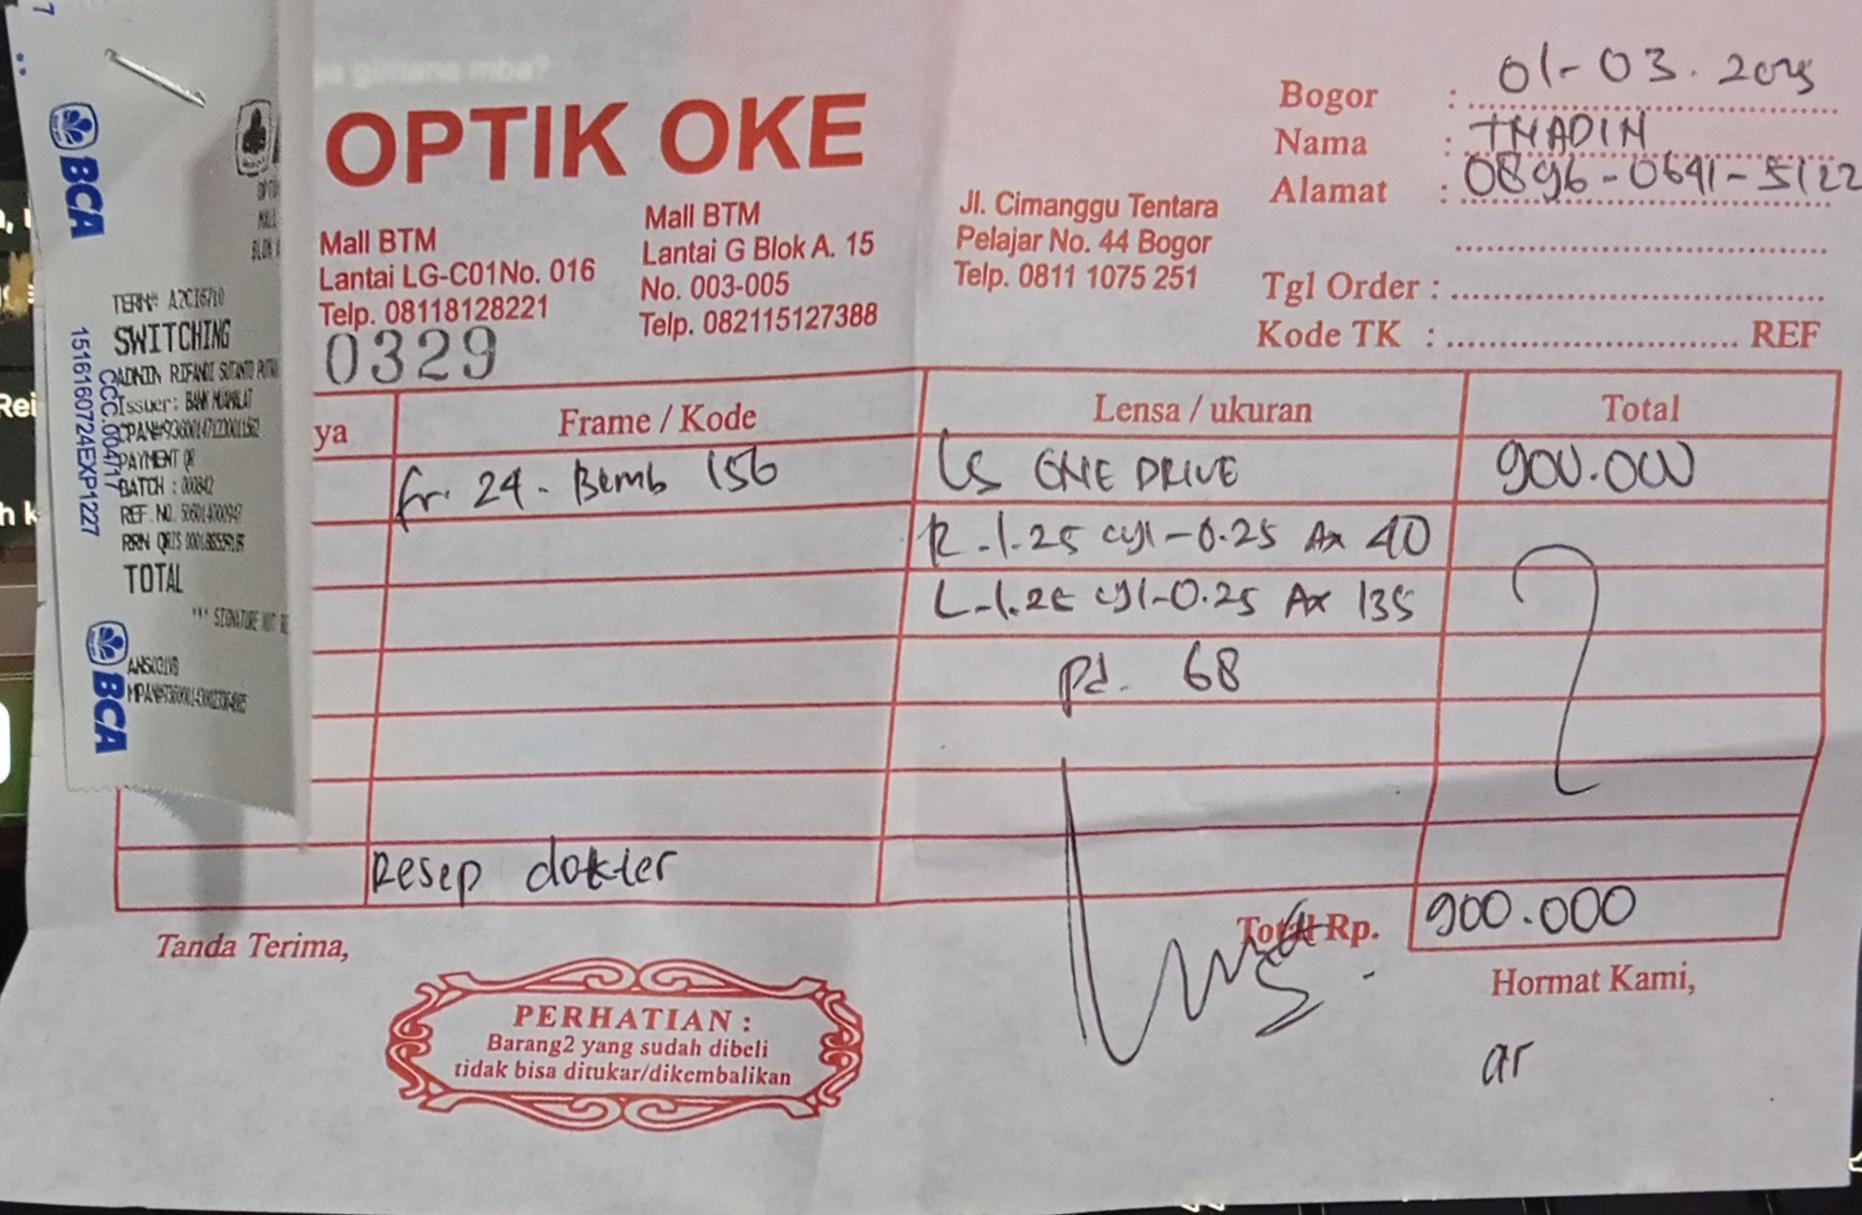 OPTIK OKE
Mall BTM
Lantai LG-C01No. 016
Telp. 08118128221
Mall BTM
Lantai G Blok A. 15
No. 003-005
Telp. 082115127388
Jl. Cimanggu Tentara
Pelajar No. 44 Bogor
Telp. 0811 1075 251
Bogor : 01-03.2025
Nama :
Alamat : 0896-0641-5122
Tgl Order :
Kode TK : REF
0329
ya Frame / Kode Lensa / ukuran Total
fr. 24. Bemb 156 LS ONE DRIVE 900.000
R -1.25 cyl -0.25 Ax 40
L -1.25 cyl -0.25 Ax 135
Pd. 68
Resep dokter
Total Rp. 900.000
Tanda Terima,
Hormat Kami,
ar
PERHATIAN :
Barang2 yang sudah dibeli
tidak bisa ditukar/dikembalikan
BCA
TERM# A2C16710
SWITCHING
Issuer: BANK MUAMALAT
PAYMENT QR
BATCH : 000842
REF. NO.
RRN QRIS
TOTAL
*** SIGNATURE NOT RE
BCA
CCC.004/17
1516160724EXP1227